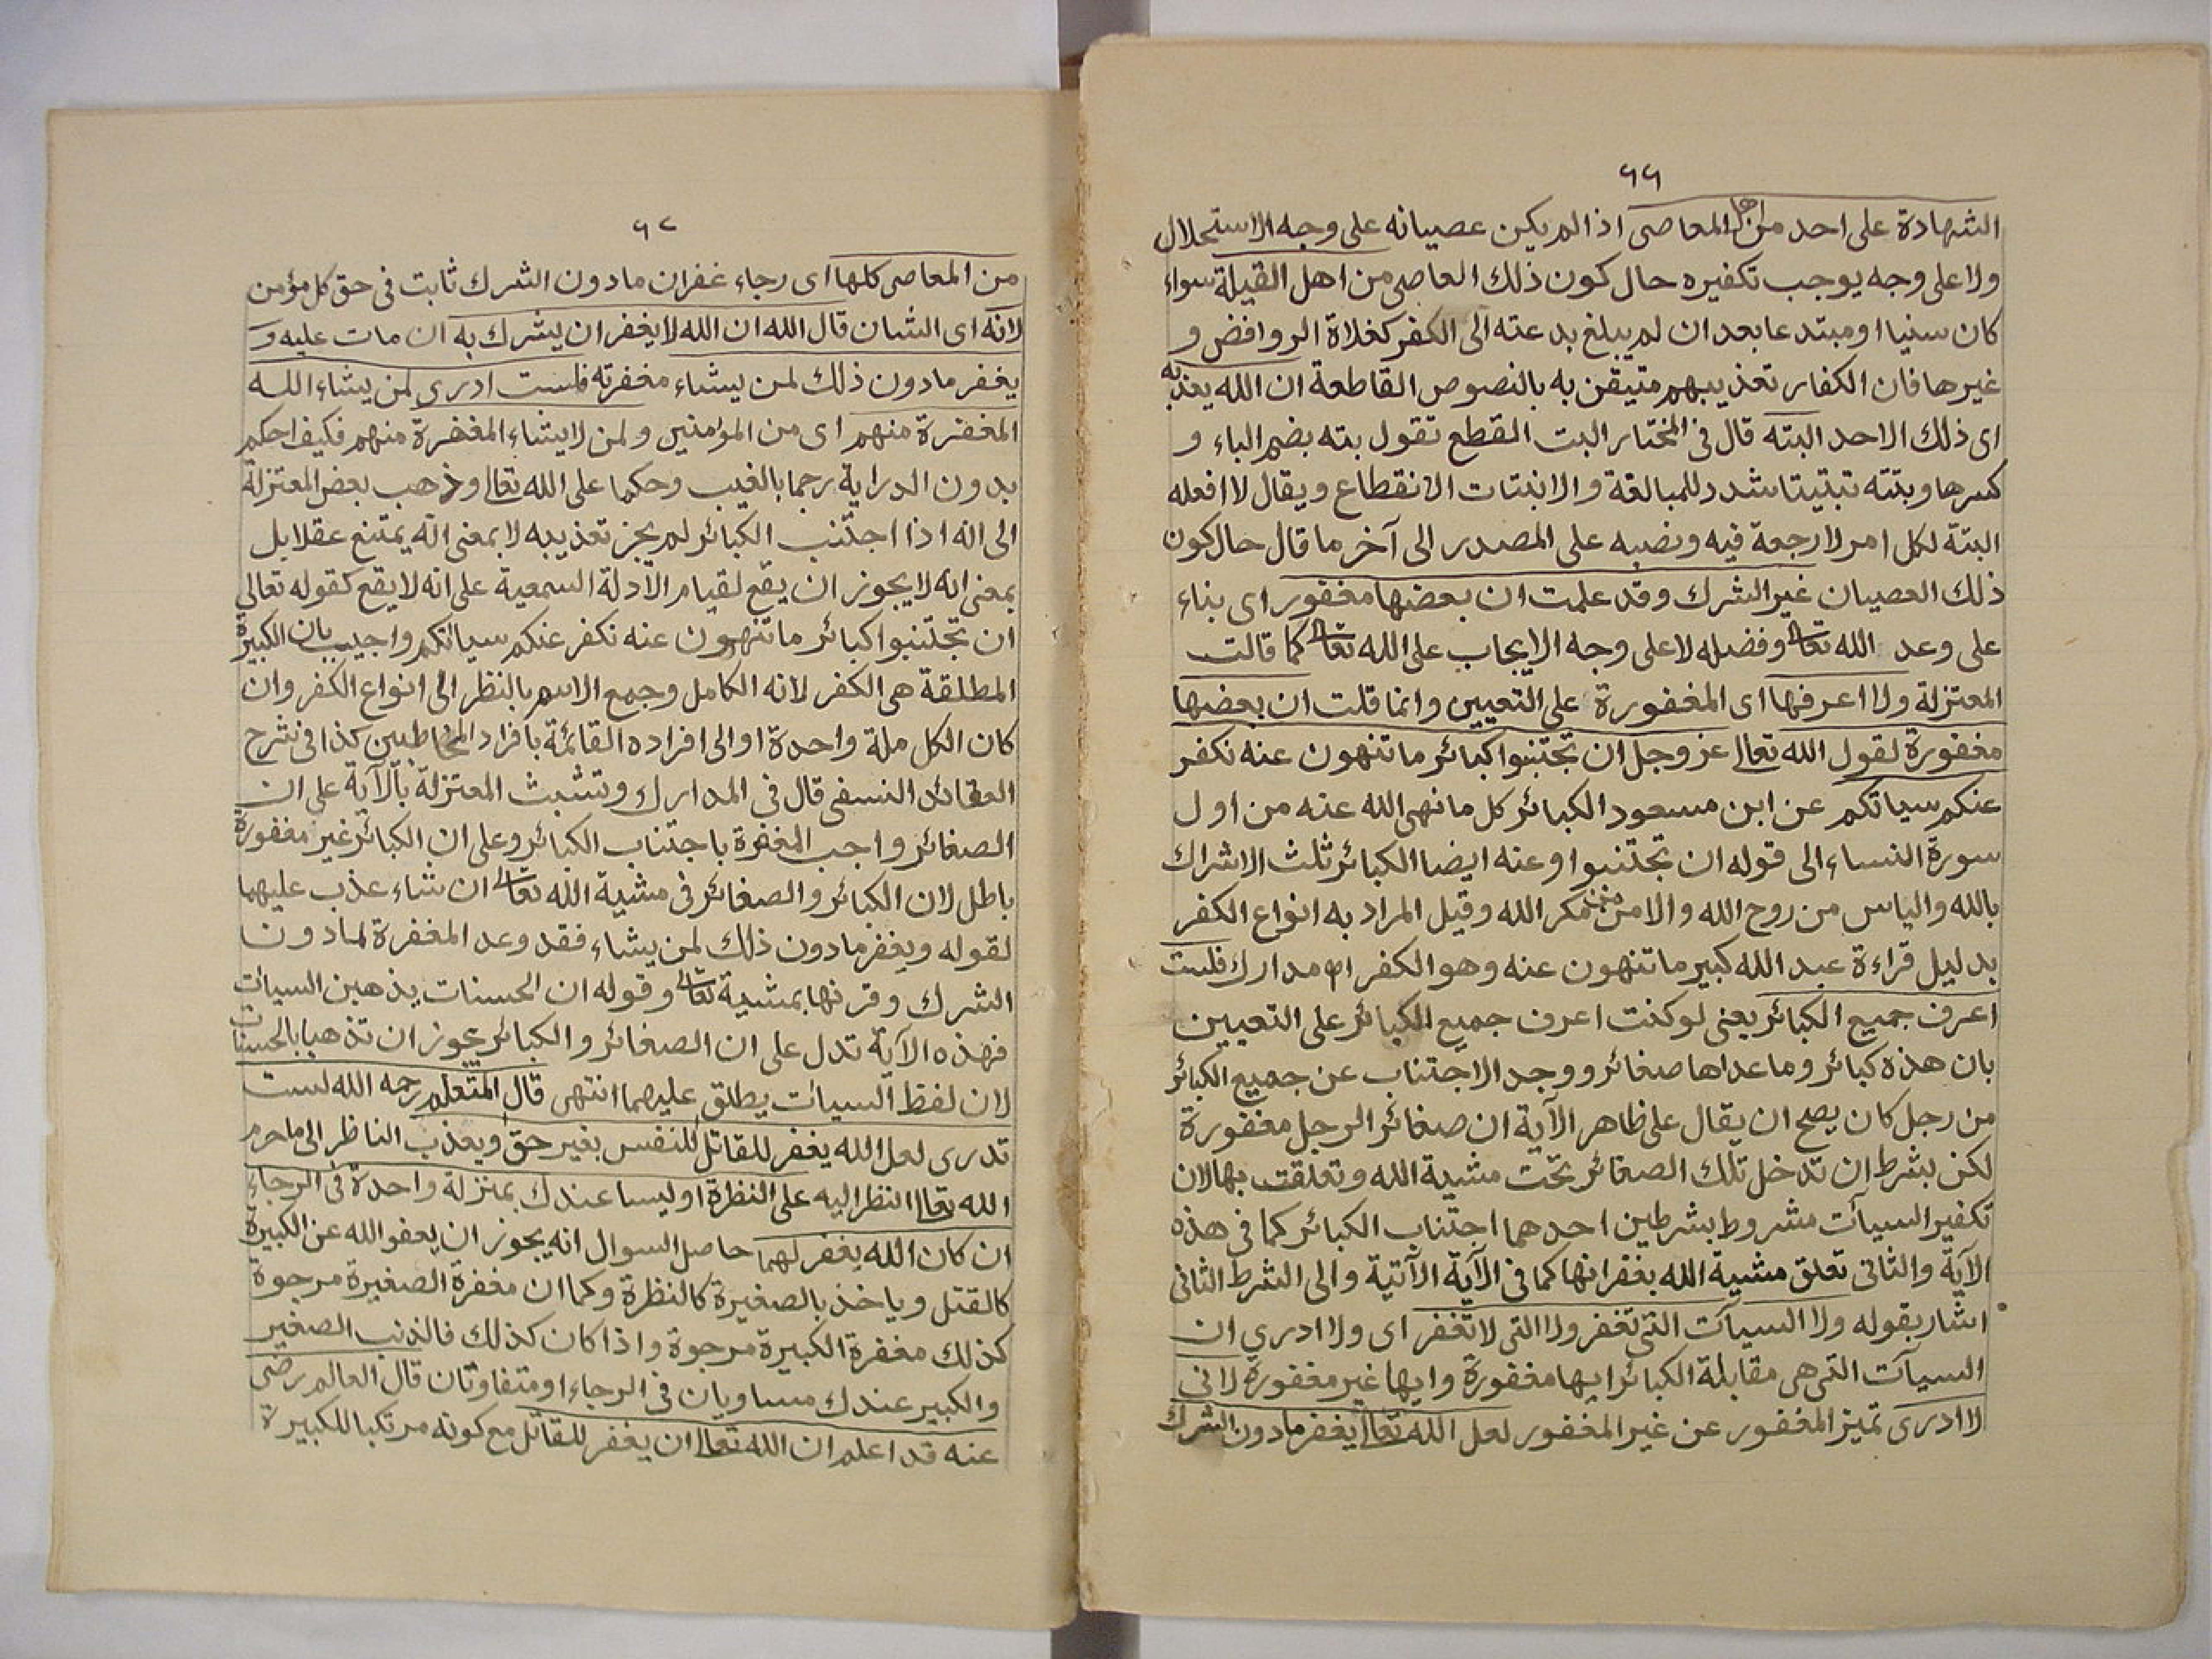 ٦٦
الشهادة على احد من اهل المعاصى اذا لم يكن عصيانه على وجه الاستحلال
ولا على وجه يوجب تكفيره حال كون ذلك العاصى من اهل القبلة سواء
كان سنيا او مبتدعا بعد ان لم يبلغ بدعته الى الكفر كغلاة الروافض و
غيرها فان الكفار تعذيبهم متيقن به بالنصوص القاطعة ان الله يعذبه
اى ذلك الاحد البته قال فى المختار البت القطع تقول بته بضم الباء و
كسرها وبتته تبتيتا شدد للمبالغة والانبتات الانقطاع ويقال لا افعله
البتة لكل امر لا رجعة فيه ونصبه على المصدر الى آخر ما قال حال كون
ذلك العصيان غير الشرك وقد علمت ان بعضها مغفور اى بناء
على وعد الله تعالى وفضله لا على وجه الايجاب على الله تعالى كما قالت
المعتزلة ولا اعرفها اى المغفورة على التعيين وانما قلت ان بعضها
مغفورة لقول الله تعالى عز وجل ان تجتنبوا كبائر ما تنهون عنه نكفر
عنكم سياتكم عن ابن مسعود الكبائر كل ما نهى الله عنه من اول
سورة النساء الى قوله ان تجتنبوا وعنه ايضا الكبائر ثلث الاشراك
بالله والياس من روح الله والامن من مكر الله وقيل المراد به انواع الكفر
بدليل قراءة عبد الله كبير ما تنهون عنه وهو الكفر اه مدارك فلست
اعرف جميع الكبائر يعنى لو كنت اعرف جميع الكبائر على التعيين
بان هذه كبائر وما عداها صغائر ووجد الاجتناب عن جميع الكبائر
من رجل كان يصح ان يقال على ظاهر الآية ان صغائر الرجل مغفورة
لكن بشرط ان تدخل تلك الصغائر تحت مشية الله وتعلقت بها لان
تكفير السيآت مشروط بشرطين احدهما اجتناب الكبائر كما فى هذه
الآية والثانى تعلق مشية الله بغفرانها كما فى الآية الآتية والى الشرط الثانى
اشار بقوله ولا السيآت التى تغفر ولا التى لا تغفر اى ولا ادري ان
السيآت التى هى مقابلة الكبائر ايها مغفورة وايها غير مغفورة لانى
لا ادرى تميز المغفور عن غير المغفور لعل الله تعالى يغفر ما دون الشرك
٦٧
من المعاصى كلها اى رجاء غفران ما دون الشرك ثابت فى حق كل مؤمن
لانه اى الشان قال الله ان الله لا يغفر ان يشرك به ان مات عليه و
يغفر ما دون ذلك لمن يشاء مغفرته فلست ادرى لمن يشاء الله
المغفرة منهم اى من المؤمنين ولمن لا يشاء المغفرة منهم فكيف احكم
بدون الدراية رجما بالغيب وحكما على الله تعالى وذهب بعض المعتزلة
الى انه اذا اجتنب الكبائر لم يجز تعذيبه لا بمعنى انه يمتنع عقلا بل
بمعنى انه لا يجوز ان يقع لقيام الادلة السمعية على انه لا يقع كقوله تعالى
ان تجتنبوا كبائر ما تنهون عنه نكفر عنكم سيائتكم واجيب بان الكبيرة
المطلقة هى الكفر لانه الكامل وجمع الاسم بالنظر الى انواع الكفر وان
كان الكل ملة واحدة او الى افراده القائمة بافراد المخاطبين كذا فى شرح
العقائد النسفى قال فى المدارك وتشبث المعتزلة بالآية على ان
الصغائر واجب المغفرة باجتناب الكبائر وعلى ان الكبائر غير مغفورة
باطل لان الكبائر والصغائر فى مشية الله تعالى ان شاء عذب عليهما
لقوله ويغفر ما دون ذلك لمن يشاء فقد وعد المغفرة لما دون
الشرك وقرنها بمشية تعالى وقوله ان الحسنات يذهبن السيات
فهذه الآية تدل على ان الصغائر والكبائر يجوز ان تذهبا بالحسنات
لان لفظ السيات يطلق عليهما انتهى قال المتعلم رحمه الله لست
تدرى لعل الله يغفر للقاتل للنفس بغير حق ويعذب الناظر الى ما حرم
الله تعالى النظر اليه على النظرة او ليسا عندك بمنزلة واحدة فى الرجاء
ان كان الله يغفر لهما حاصل السوال انه يجوز ان يعفو الله عن الكبيرة
كالقتل وياخذ بالصغيرة كالنظرة وكما ان مغفرة الصغيرة مرجوة
كذلك مغفرة الكبيرة مرجوة واذا كان كذلك فالذنب الصغير
والكبير عندك مساويان فى الرجاء او متفاوتان قال العالم رضى
عنه قد اعلم ان الله تعالى ان يغفر للقاتل مع كونه مرتكبا للكبيرة